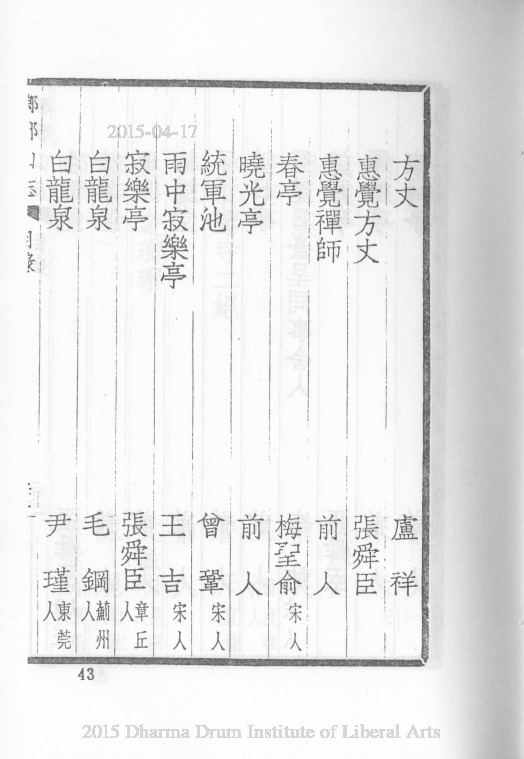 2015-04-17
方丈 盧祥
惠覺方丈 張舜臣
惠覺禪師 前人
春亭 梅聖俞 宋人
曉光亭 前人
統軍池 曾鞏 宋人
雨中寂樂亭 王吉 宋人
寂樂亭 張舜臣 章丘人
白龍泉 毛鋼 蘄州人
白龍泉 尹瑾 東莞人
山志 目錄
43
2015 Dharma Drum Institute of Liberal Arts